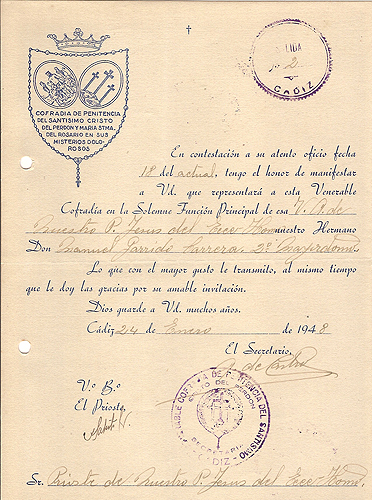 COFRADIA DE PENITENCIA
DEL SANTISIMO CRISTO
DEL PERDON Y MARIA STMA.
DEL ROSARIO EN SUS
MISTERIOS DOLO-
ROSOS
CADIZ
En contestación a su atento oficio fecha
18 del actual, tengo el honor de manifestar
a Vd. que representará a esta Venerable
Cofradía en la Solemne Función Principal de esa V. A. de
Nuestro P. Jesus del Ecce Homo nuestro Hermano
Don Manuel Garrido 2º Mayordomo.
Lo que con el mayor gusto le transmito, al mismo tiempo
que le doy las gracias por su amable invitación.
Dios guarde a Vd. muchos años.
Cádiz 24 de Enero de 1948
El Secretario,
A. de Castro
V.º B.º
El Prioste,
COFRADIA DE PENITENCIA DEL SANTISIMO
CRISTO DEL PERDON
SECRETARIA
CADIZ
Sr. Prioste de Nuestro P. Jesus del Ecce Homo.